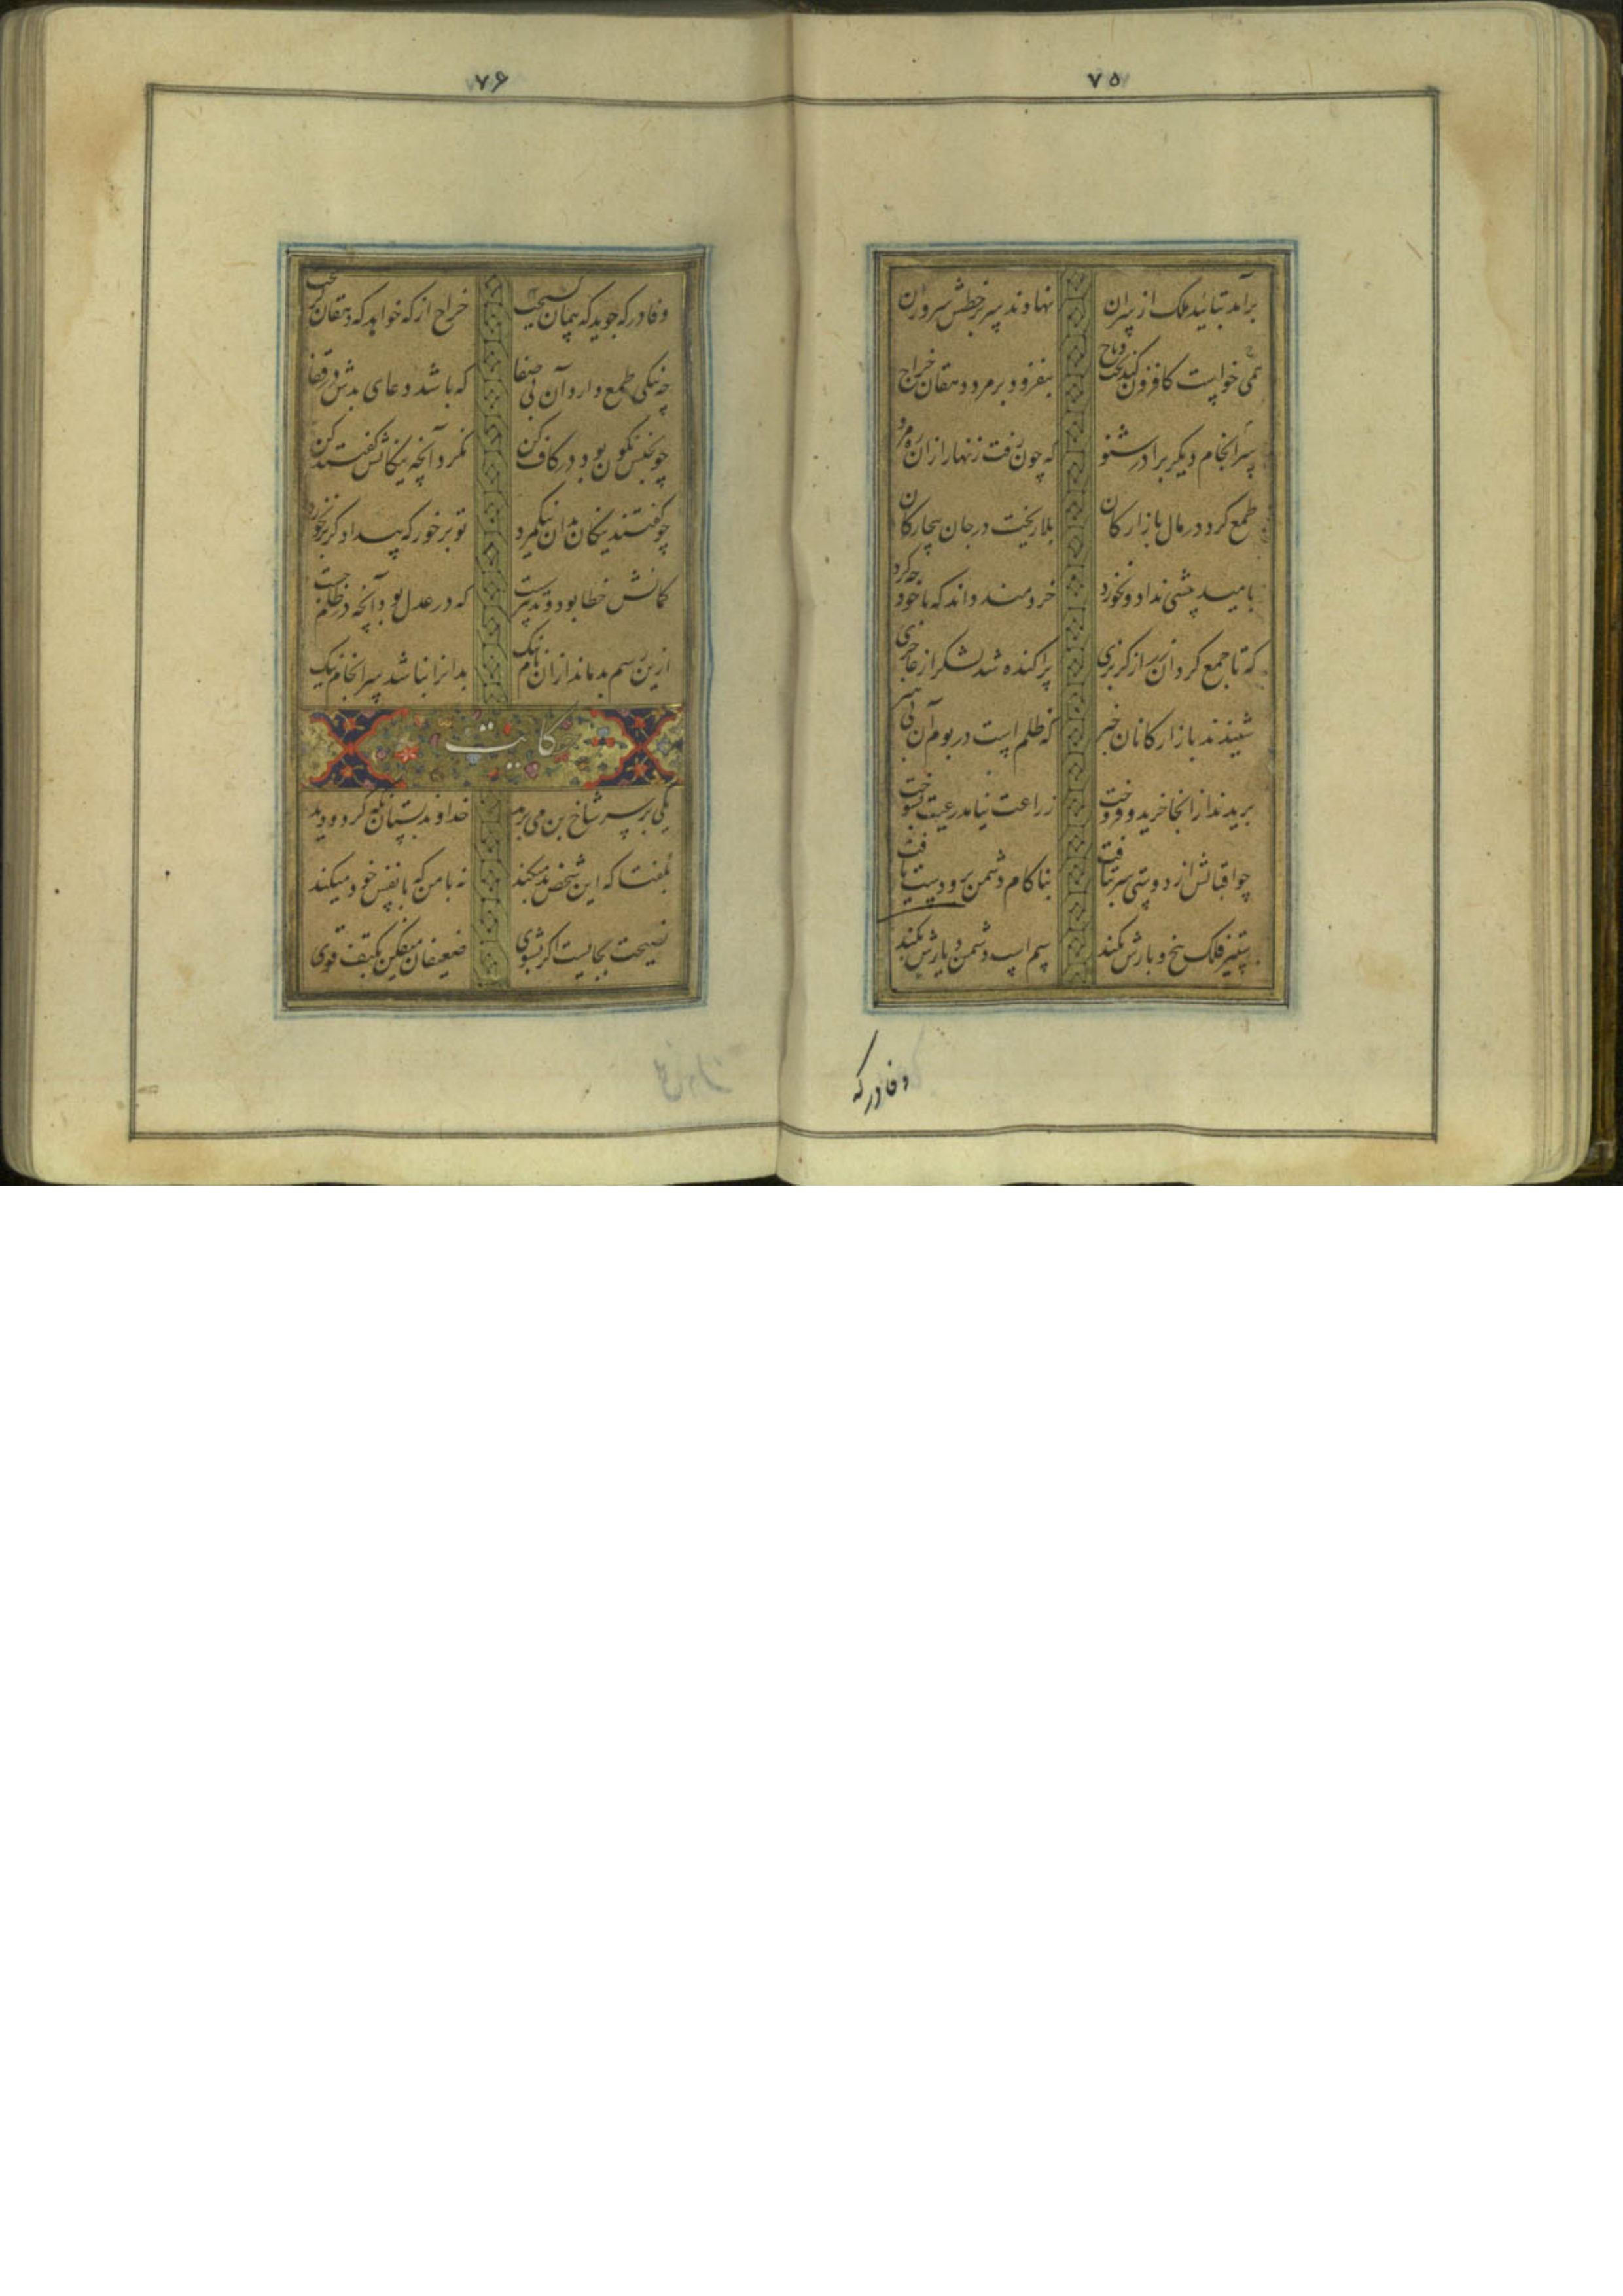 ۷۵
برآمد بتائید ملک از سران
نهادند سر بر خطش سروران
نمی خواست کافزون کند تخت و تاج
بیفزود بر مرد دهقان خراج
سرانجام دیگر برادر شنو
که چون رفت زنهار ازان ره مرو
طمع کرد در مال بازارکان
بلا ریخت در جان بیچارکان
بامید بیشی نداد و نخورد
خردمند داند که با خود چه کرد
که تا جمع کرد آن زر از کربزی
پراکنده شد لشکر از عاجزی
شنیدند بازارکانان خبر
که ظلم است در بوم آن بی هنر
بریدند از انجا خرید و فروخت
زراعت نیامد رعیت بسوخت
چو اقبالش از دوستی سر بتافت
بناکام دشمن برو دست یافت
ستیز فلک بیخ و بارش بکند
سم اسب دشمن دیارش بکند
وفا در که
۷۶
وفا در که جوید که پیمان کسیخت
خراج از که خواهد که دهقان کریخت
چه نیکی طمع دارد آن بی صفا
که باشد دعای بدش در قفا
چو بختش نکون بود در کاف کن
نکرد آنچه نیکانش کفتند کن
چو کفتند نیکان بدان نیکمرد
تو برخور که بیدادکر بر نخورد
کمانش خطا بود و تدبیر سست
که در عدل بود آنچه در ظلم جست
ازین رسم بد ماند ازان نام نیک
بدانرا نباشد سرانجام نیک
حکایت
یکی بر سر شاخ بن می برید
خداوند بستان نکه کرد و دید
بکفتا که این شخص بد میکند
نه با من که با نفس خود میکند
نصیحت بجایست اکر بشنوی
ضعیفان میفکن بکتف قوی